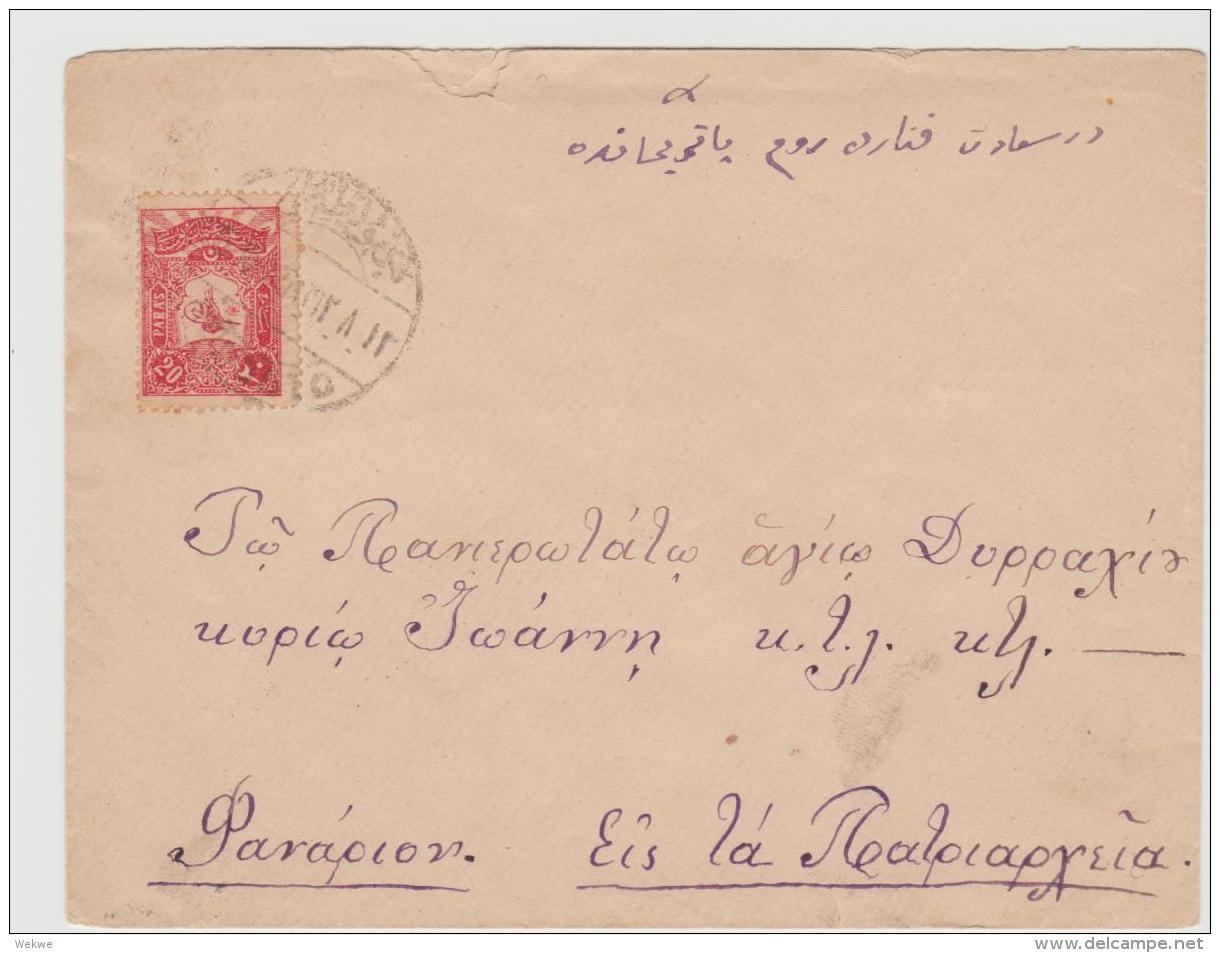 در سعادت فنارده روم پاتریقخانه
PARAS
20
٢٠
Τῷ Πανιερωτάτῳ ἁγίῳ Δυρραχίου
κυρίῳ Ἰωάννῃ κ.τ.λ. κτλ. —
Φανάριον. Εἰς τά Πατριαρχεῖα.
Wekwe
delcampe.net